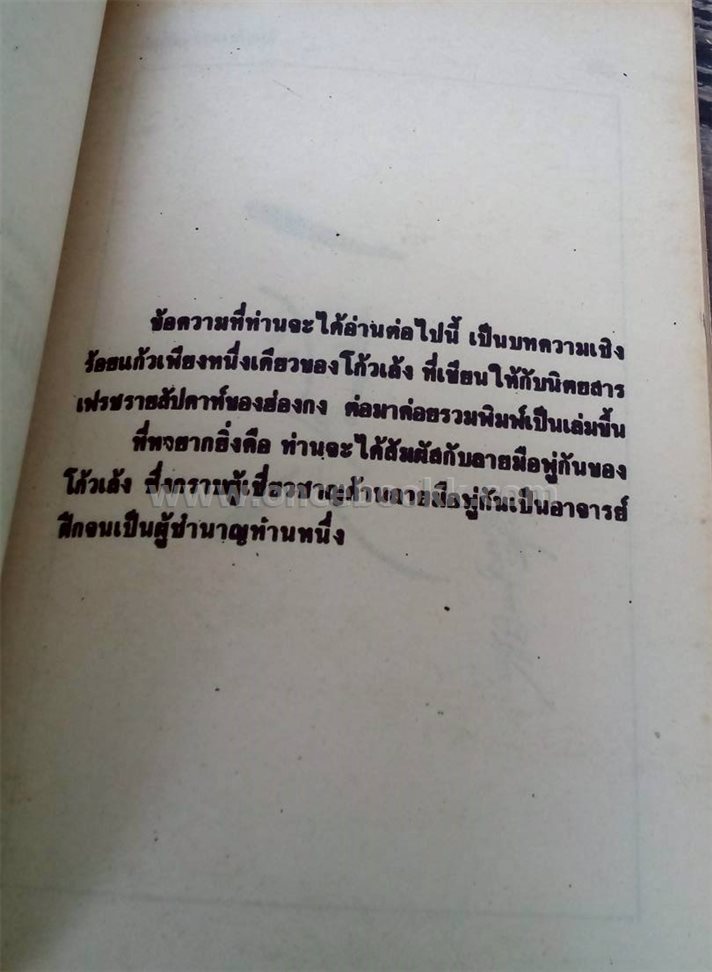 ข้อความที่ท่านจะได้อ่านต่อไปนี้ เป็นบทความเชิง
ร้อยแก้วเพียงหนึ่งเดียวของโก้วเล้ง ที่เขียนให้กับนิตยสาร
เฟรชรายสัปดาห์ของฮ่องกง ต่อมาค่อยรวมพิมพ์เป็นเล่มขึ้น
ที่พจยากยิ่งคือ ท่านจะได้สัมผัสกับลายมือพู่กันของ
โก้วเล้ง ซึ่งกราบผู้เชี่ยวชาญด้านลายมือพู่กันเป็นอาจารย์
ฝึกจนเป็นผู้ชำนาญท่านหนึ่ง